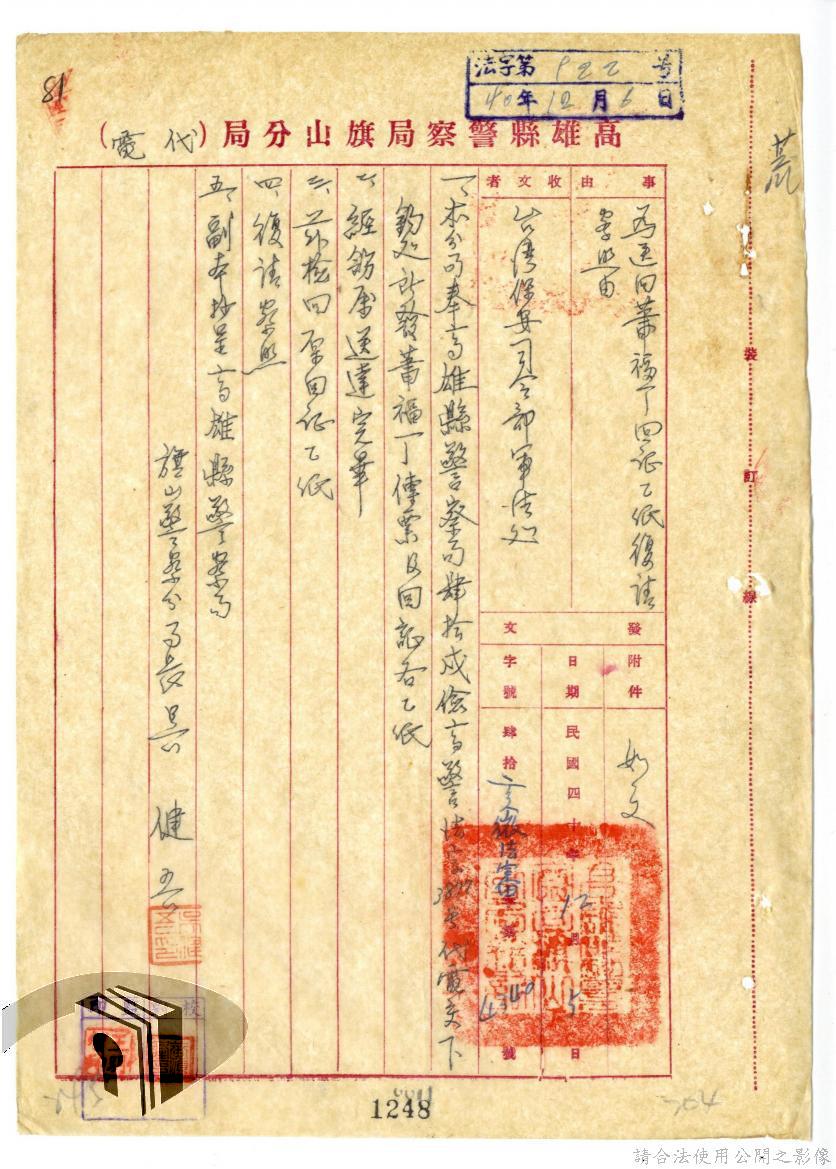 81
法字第922号
40年12月6日
高雄縣警察局旗山分局(代電)
事由
為送回蕭福丁回証乙紙復請
察照由
收文者
台灣保安司令部軍法処
發文
附件
如文
日期
民國四十年12月5日
字號
肆拾
4340號
一、本分局奉高雄縣警察局肆拾戌儉高警法字號代電交下
鈞処所發蕭福丁傳票及回証各乙紙
二、經飭屬送達完畢
三、茲檢回原回証乙紙
四、復請察照
五、副本抄呈高雄縣警察局
旗山警察分局長吳健吾
裝訂線
1248
704
請合法使用公開之影像